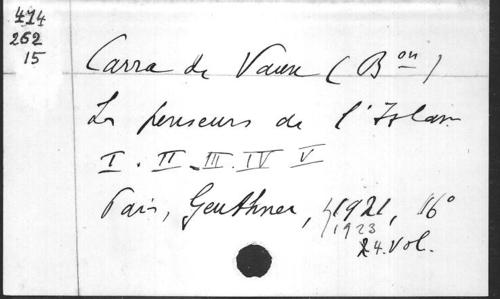 474
262
15
Carra de Vaux (Bon)
Les penseurs de l'Islam
I. II. III. IV V
Paris, Geuthner, 1921, 16°
1923
4. vol.